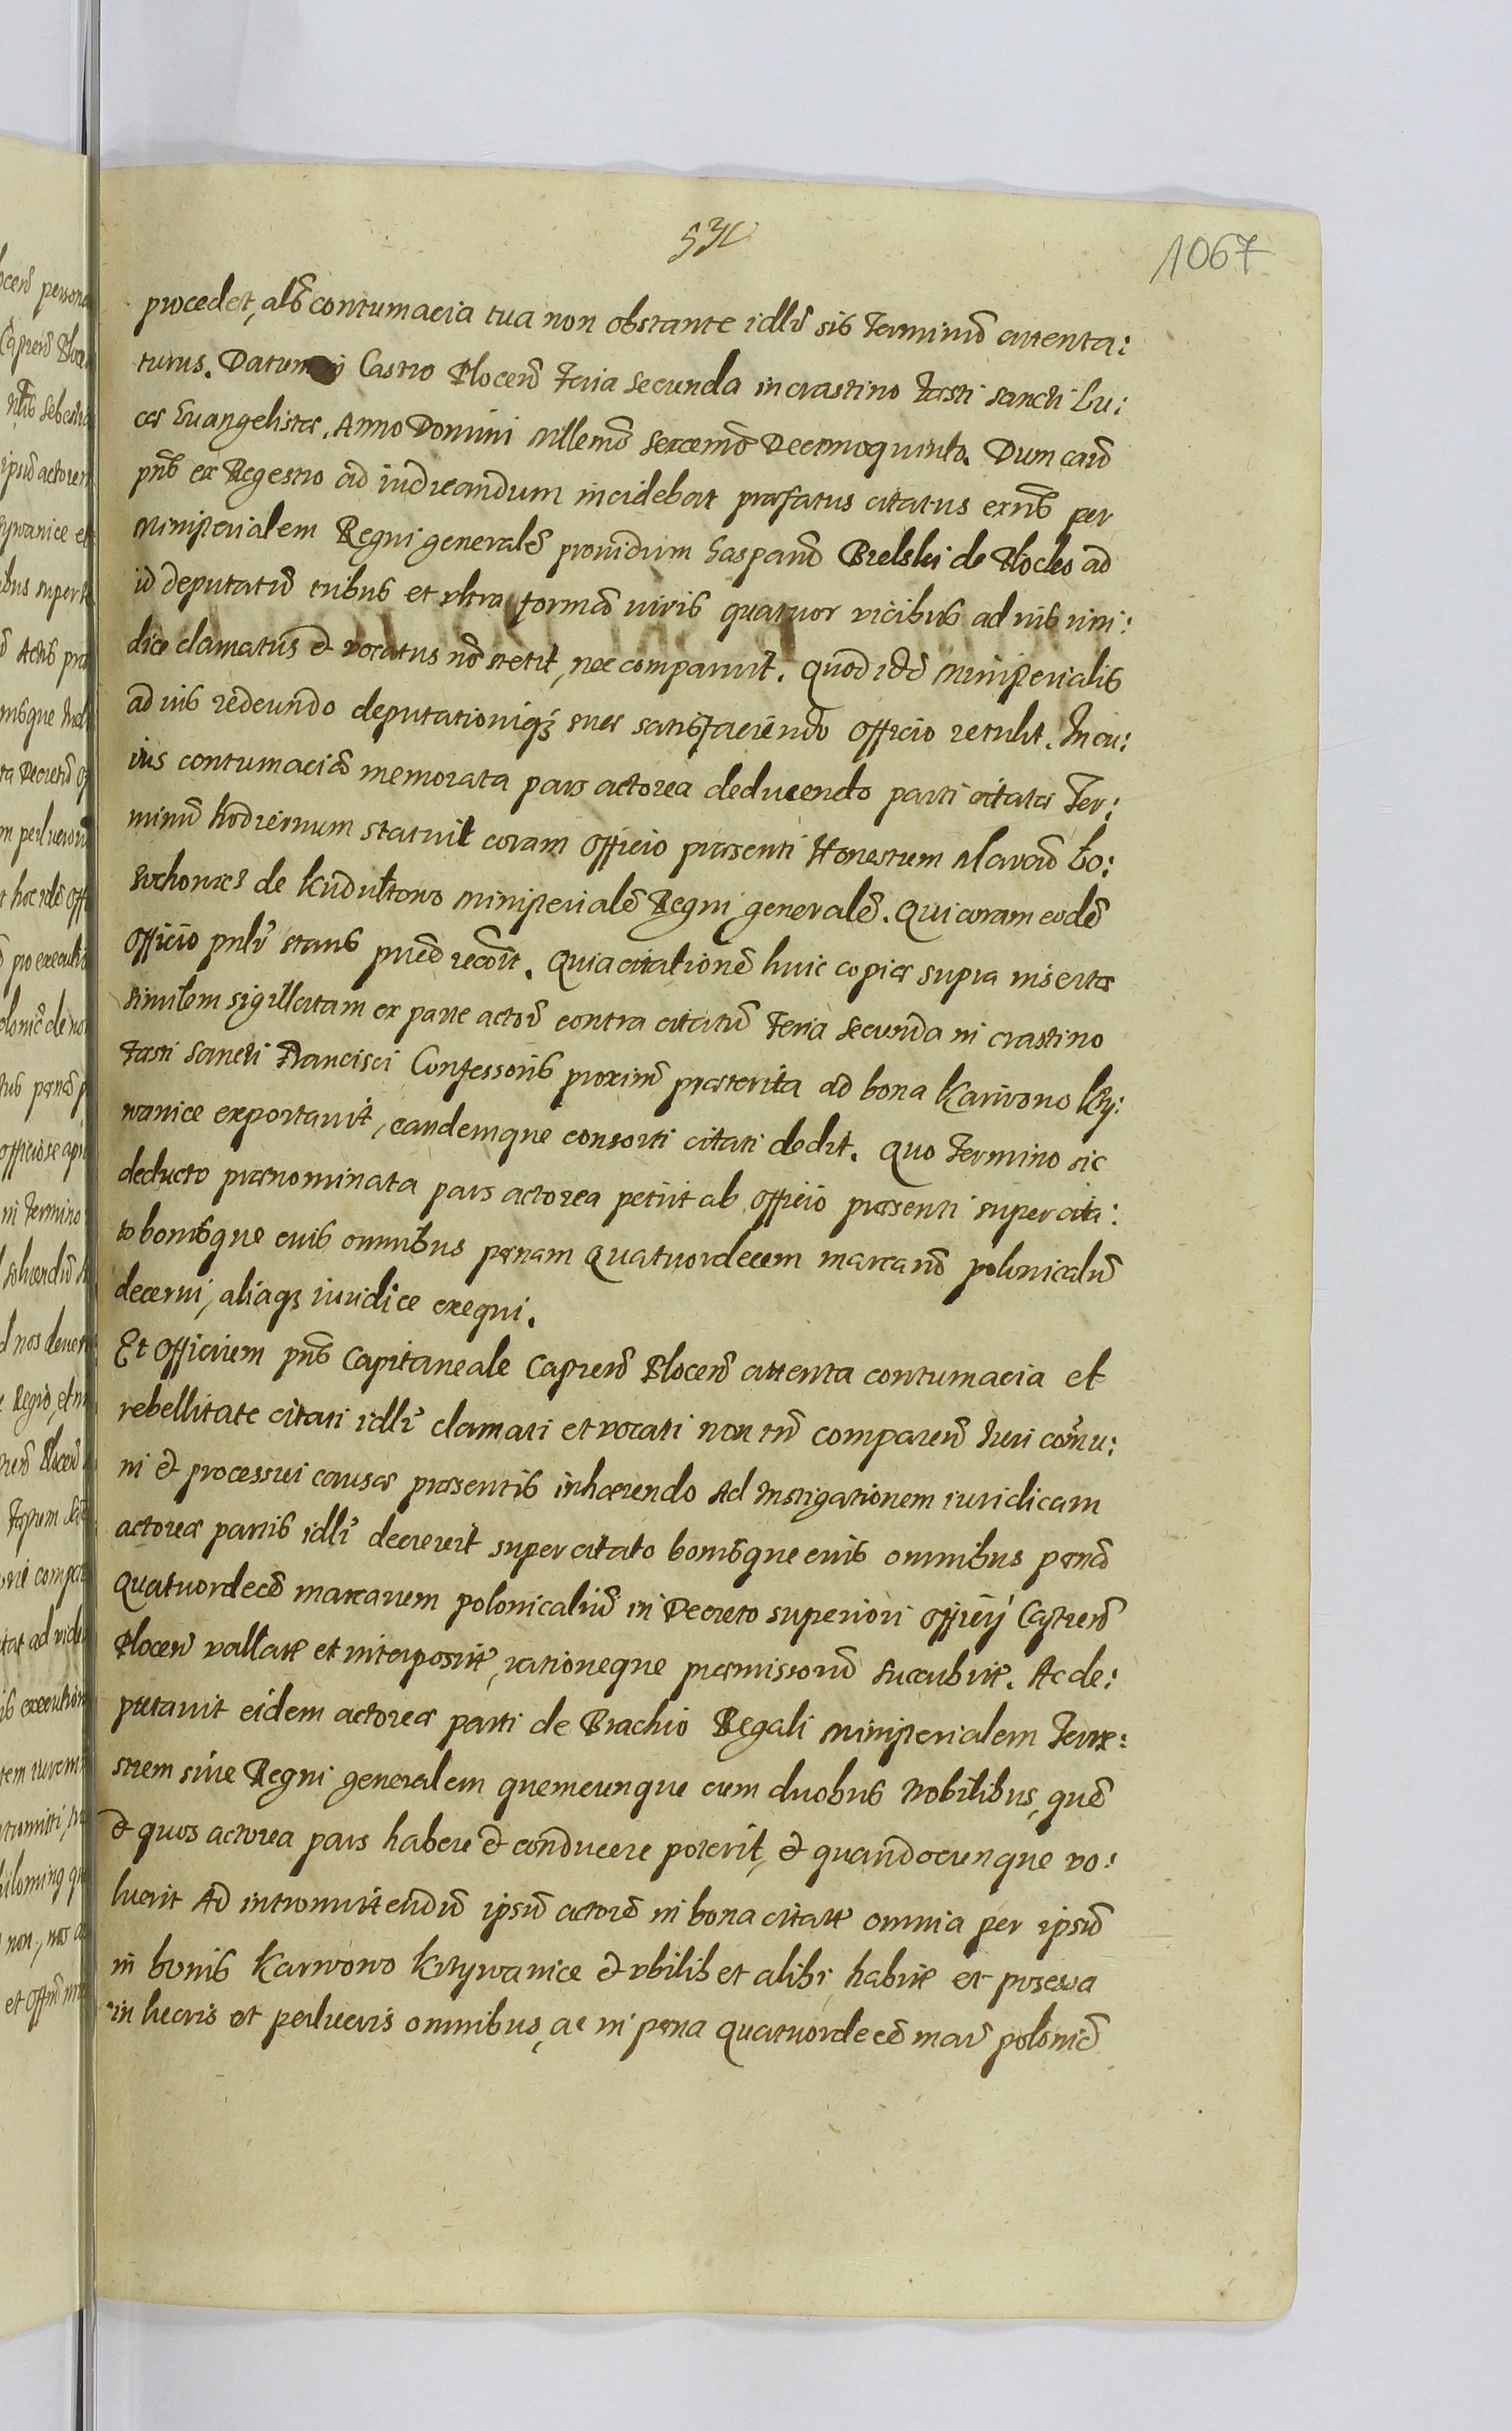 532
1067
procedet, als contumacia tua non obstante idllr sib Terminũ attenta:
turus. Datum in Castro Plocen̄ Feria Secunda in crastino Festi Sancti Lu:
cæ Euangelistæ, Anno Domini Millemo Sexcemo Decimoquinto. Dum cauõ
pñs ex Regestro ad iudicandum incidebat præfatus citatus exñs per
Ministerialem Regni generalē prouidum Gasparū Bielski de Plocko ad
id deputatū tribus et vltra formā iuris quatuor vicibus ad ius iuri:
dice clamatus & vocatus nō stetit, nec comparuit. Quod idē Ministerialis
ad ius redeundo deputationiq₃ suæ satisfaciendo Officio retulit. In cu:
ius contumaciã memorata pars actorea deducendo parti citatæ Ter:
minū hodiernum statuit coram Officio præsenti Honestum Alarciū Bo:
de Kũdultowo Ministerialē Regni generalē. Qui coram eodē
Officio pnlr stans pmē recōit. Quia citationē huic copiæ supra insertæ
similem sigillatam ex parte actoř contra citatū Feria Secunda in crastino
Festi Sancti Francisci Confessoris proximē præterita ad bona Karwowo Krzy:
wanice exportauit, eandemque consorti citati dedit. Quo Termino sic
deducto prænominata pars actorea petiit ab Officio præsenti super cita:
to bonisque eius omnibus pœnam quatuordecem marcarū polonicaliū
decerni, aliaq₃ iuridice exequi.
Et Officium pñs Capitaneale Castren̄ Plocen̄ attenta contumacia et
rebellitate citati idllr clamati et vocati non tñ comparen̄ Iuri comu:
ni & processui causæ præsentis inhærendo Ad Instigationem iuridicam
actoreæ partis idllr decreuit super citato bonisque eius omnibus pœnā
quatuordecē marcarum polonicaliū in Decreto superiori Officij Castren̄
Plocen̄ vallatæ et interpositæ, rationeque præmissorū succubitæ. Ac de:
putauit eidem actoreæ parti de Brachio Regali Ministerialem Terre:
strem siue Regni generalem quemcunque cum duobus Nobilibus, quē
& quos actorea pars habere & conducere poterit, & quandocunque vo:
luerit Ad intromittendū ipsū actorē in bona citati omnia per ipsū
in bonis Karwowo Krzywanice & vbilib et alibi, habita et possessa
in lucris et perlucris omnibus, ac in pœna quatuordecē mar̄ polonic̄